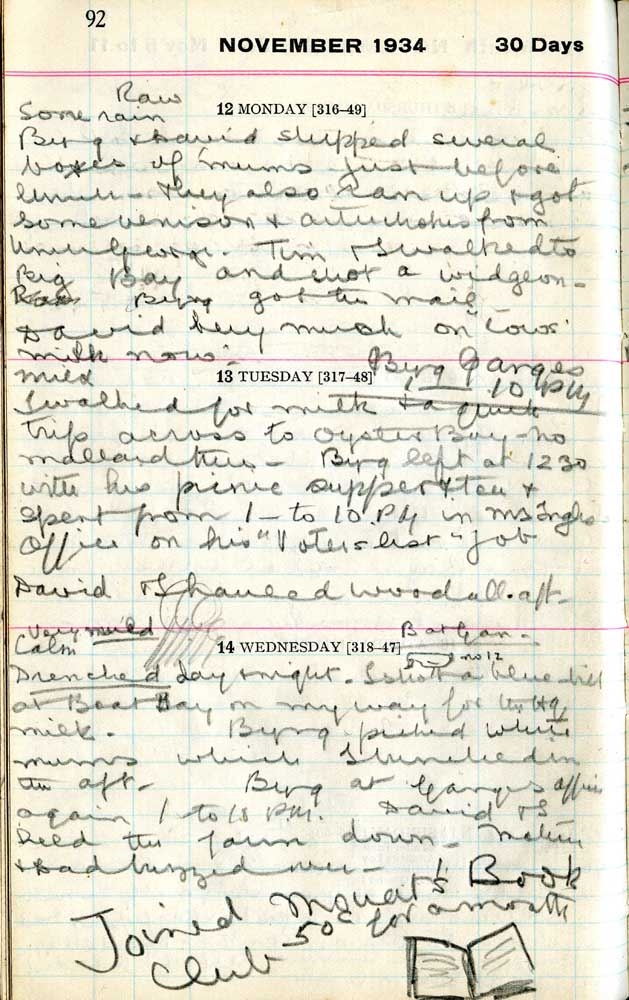 92
NOVEMBER 1934 30 Days
Raw
Some rain 12 MONDAY [316–49]
Byng & David shipped several
boxes of 'mums just before
lunch - they also ran up & got
some venison & artichokes from
Uncle George. Tim & I walked to
Big Bay and shot a widgeon -
Byng got the mail -
David very much on 'cows'
milk now - Byng Ganges
mild 13 TUESDAY [317–48] 1 — 10 PM
I walked for milk & a quick
trip across to Oyster Bay - no
mallard there - Byng left at 1230
with his picnic supper & tea &
spent from 1 - to 10. PM in Mr Inglis
Office on his "Voters list" job
David & I hauled wood all. aft -
Very mild
Calm 14 WEDNESDAY [318–47] B at Gan -
no 12
Drenched day & night. I shot a blue-bill
at Boat Bay on my way for the
milk. - Byng picked white
mums which I bunched in
the aft - Byng at Ganges office
again 1 to 10 PM. David & I
held the farm down -
& Dad buzzed over -
Joined Mouat's Book
Club 50c for a month